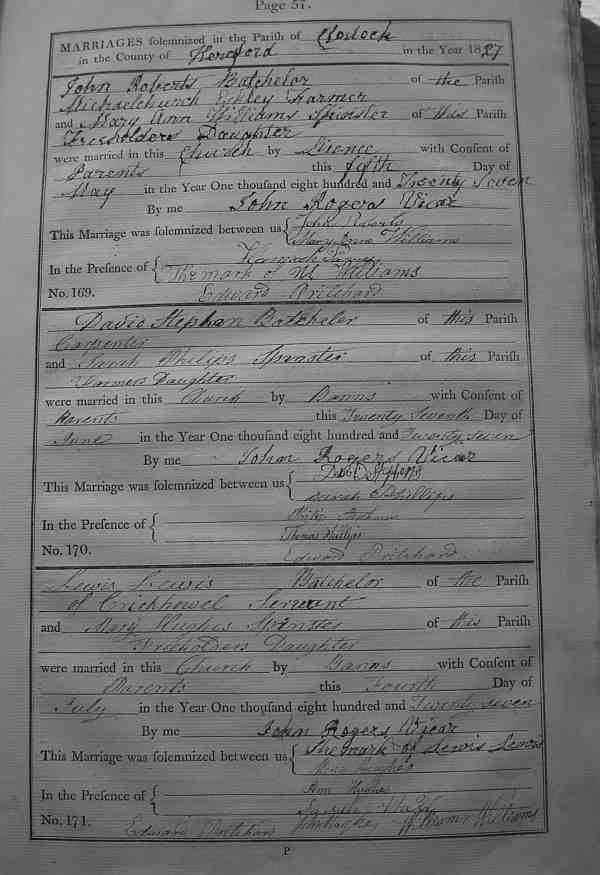 Page 57.
MARRIAGES solemnized in the Parish of Clodock
in the County of Hereford in the Year 1827
John Roberts Batchelor of the Parish
Michaelchurch Eskley Farmer
and Mary Ann Williams Spinster of this Parish
Freeholders Daughter
were married in this Church by Licence with Consent of
Parents this fifth Day of
May in the Year One thousand eight hundred and Twenty Seven
By me John Rogers Vicar
This Marriage was solemnized between us John Roberts
Mary Anne Williams
In the Presence of
The mark of Williams
No. 169. Edward Pritchard
David Stephen Batcheler of this Parish
Carpenter
and Sarah Philips Spinster of this Parish
Farmers Daughter
were married in this Church by Banns with Consent of
Parents this Twenty Seventh Day of
June in the Year One thousand eight hundred and Twenty seven
By me John Rogers Vicar
This Marriage was solemnized between us
Sarah Phillips
In the Presence of Philip
Thomas Phillips
No. 170. Edward Pritchard
Lewis Lewis Batchelor of the Parish
of Crickhowel Servant
and Mary Hughes Spinster of this Parish
Freeholders Daughter
were married in this Church by Banns with Consent of
Parents this Fourth Day of
July in the Year One thousand eight hundred and Twenty seven
By me John Rogers Vicar
This Marriage was solemnized between us The mark of Lewis Lewis
Hughes
In the Presence of Ann Hughes
No. 171. Edward Pritchard William Williams
P